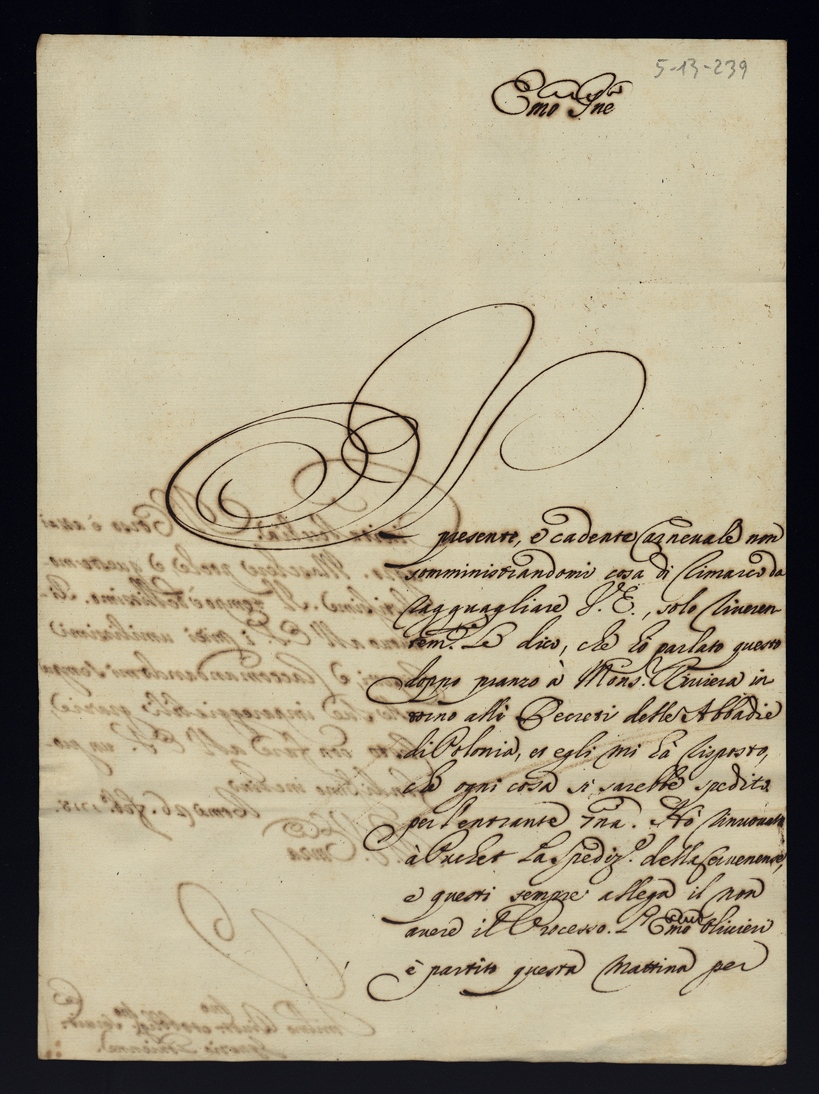 5-13-239
Emo Pne
Il presente, e cadente Carnevale non
somministrandomi cosa di rimarco da
ragguagliare V. E., solo riveren
tem.e Le dico, che hò parlato questo
doppo pranzo à Mons.r Riviera in
torno alli Decreti delle Abbadie
di Polonia, et egli mi hà risposto,
che ogni cosa si sarebbe spedita
per l'entrante 7na. Hò rinuovata
à Puchet La spediz.e della
e questi sempre allega il non
avere il Processo. L'Emo Olivieri
è partito questa Mattina per